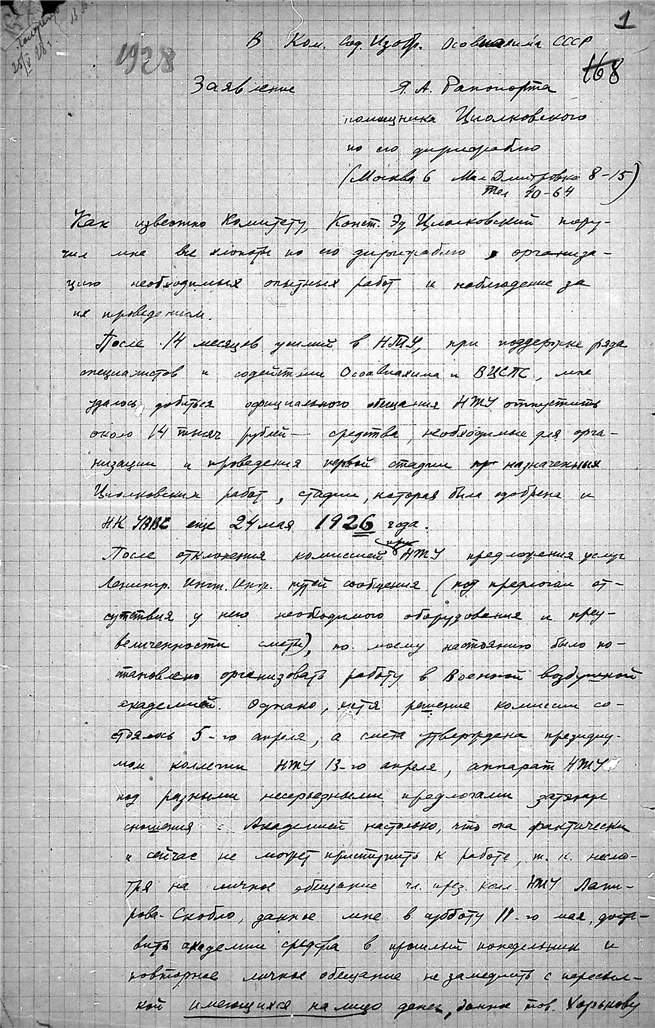 1
1928
168
В Ком. Сод. Изобр. Осоавиахима СССР
Заявление Я. А. Рапопорта
помощника Циолковского
по его дирижаблю
(Москва 6 Мал Дмитровка 8-15)
тел 70-64
Как известно Комитету, Конст. Эд Циолковский пору-
чил мне все хлопоты по его дирижаблю, организа-
цию необходимых опытных работ и наблюдение за
их проведением.
После 14 месяцев усилий в НТУ, при поддержке ряда
специалистов и содействии Осоавиахима и ВЦСПС, мне
удалось добиться официального обещания НТУ отпустить
около 14 тысяч рублей — средства, необходимые для орга-
низации и проведения первой стадии назначенных
Циолковским работ, стадии, которая была одобрена и
НК еще 24 мая 1926 года.
После отклонения комиссией при НТУ предложения услуг
Ленингр. Инст. Инж. путей сообщения (под предлогом от-
сутствия у него необходимого оборудования и преу-
величенности сметы), по моему настоянию было по-
становлено организовать работу в Военной воздушной
академией. Однако, хотя решение комиссии со-
стоялось 5-го апреля, а смета утверждена президиу-
мом коллегии НТУ 13-го апреля, аппарат НТУ
под разными несерьезными предлогами затянул
сношения с Академией настолько, что она фактически
и сейчас не может приступить к работе, т. к. несмо-
тря на личное обещание чл. през. колл. НТУ Лапи-
рова-Скобло, данное мне в субботу 19-го мая, доста-
вить академии средства в прошлый понедельник и
повторное личное обещание не замедлить с пересыл-
кой имеющихся на лицо денег, данное тов. Харькову